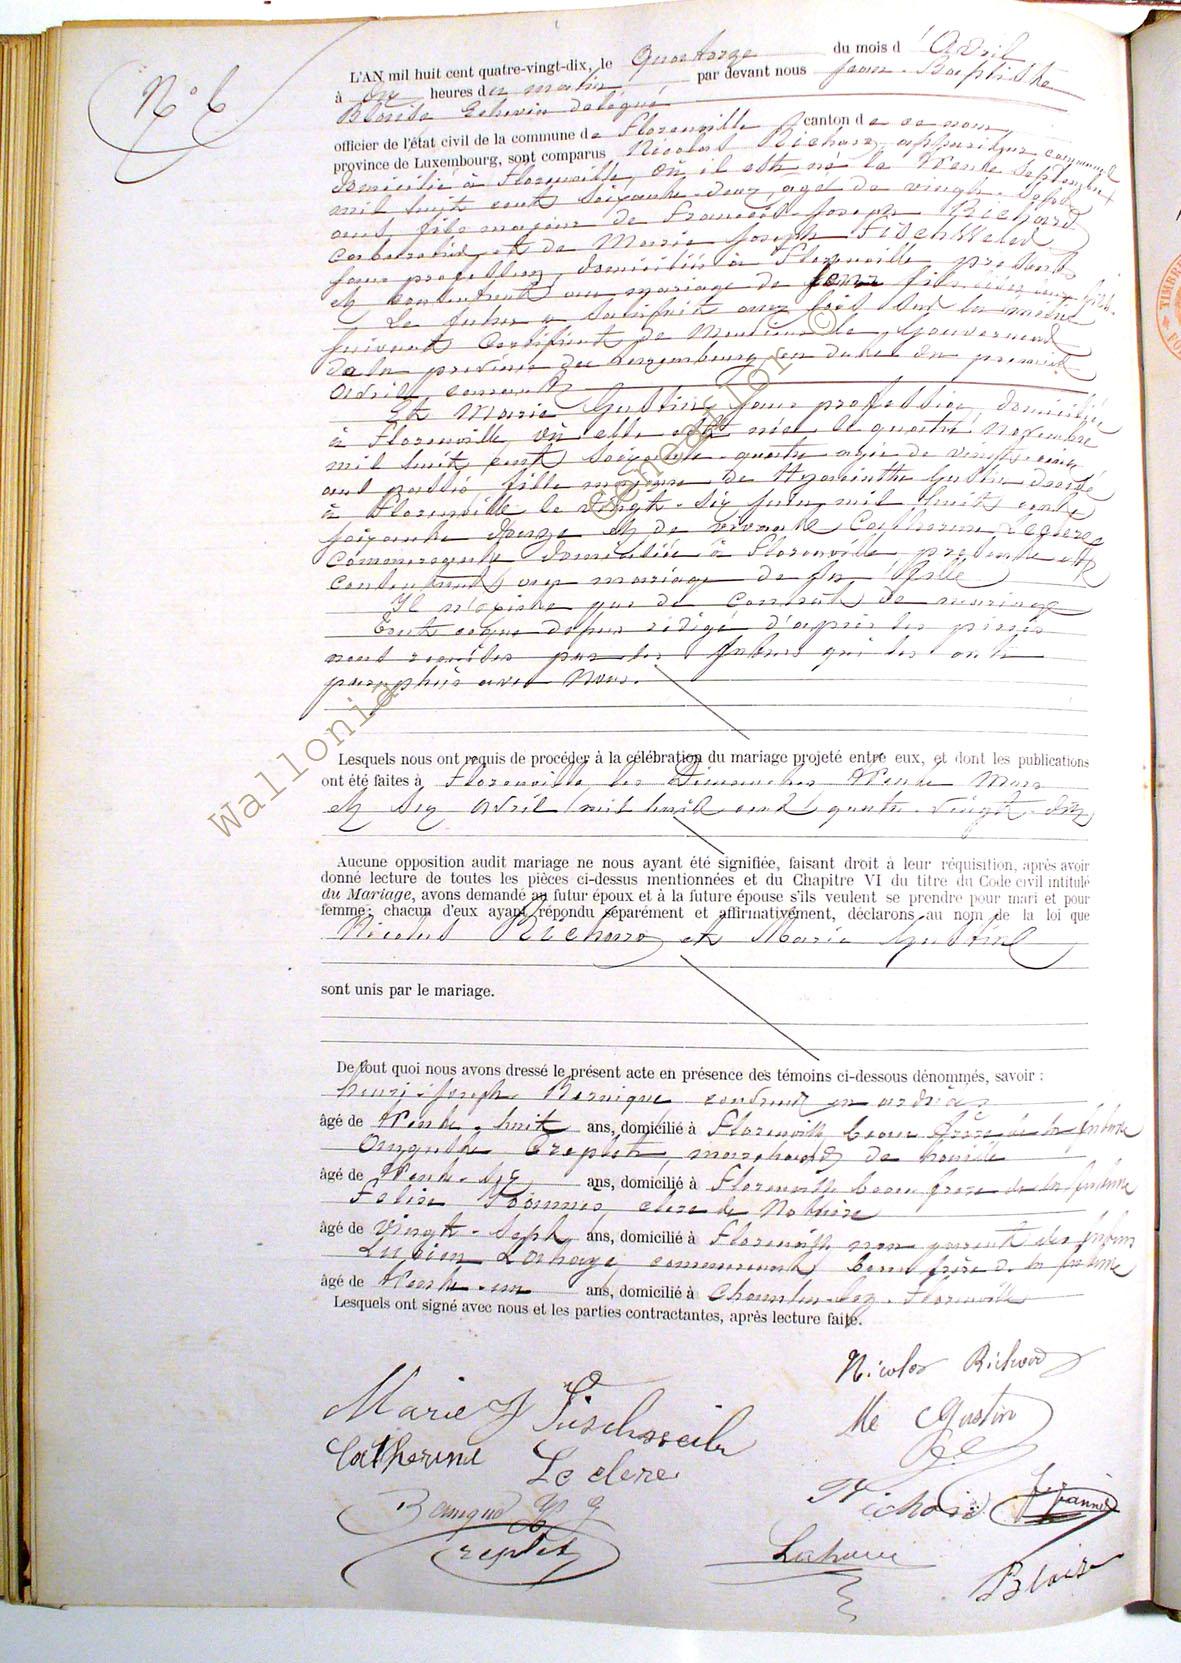 N° 6
L'AN mil huit cent quatre-vingt-dix, le Quatorze du mois d'Avril
à dix heures du matin par devant nous Jean-Baptiste
Blaise Echevin délégué
officier de l'état civil de la commune de Florenville canton de ce nom,
province de Luxembourg, sont comparus Nicolas Richard, appariteur communal
domicilié à Florenville, où il est né le trente Septembre
mil huit cent soixante-deux, agé de vingt-sept
ans, fils majeur de François-Joseph Richard
et de Marie Joseph
sans profession, domiciliés à Florenville présents
et consentant au mariage de leur fils
Le futur a satisfait aux lois sur la milice
suivant certificat de Monsieur le Gouverneur
de la province du Luxembourg en date du premier
avril courant
Et Marie Gustin sans profession, domiciliée
à Florenville, où elle est née le quatre novembre
mil huit cent soixante-quatre agée de vingt-cinq
ans passés fille majeure de Hyacinthe Gustin décédé
à Florenville le vingt-six Juin mil huit cent
soixante et de vivante Catherine Leclere
commerçante domiciliée à Florenville présente et
consentant au mariage de sa fille
Il n'existe pas de contrat de mariage
Tout ce que dessus rédigé d'après les pièces
nous remises par les futurs qui les ont
paraphés avec Nous.
Lesquels nous ont requis de procéder à la célébration du mariage projeté entre eux, et dont les publications
ont été faites à Florenville les Dimanches trente Mars
et six Avril mil huit cent quatre-vingt-dix
Aucune opposition audit mariage ne nous ayant été signifiée, faisant droit à leur réquisition, après avoir
donné lecture de toutes les pièces ci-dessus mentionnées et du Chapitre VI du titre du Code civil intitulé
du Mariage, avons demandé au futur époux et à la future épouse s'ils veulent se prendre pour mari et pour
femme; chacun d'eux ayant répondu séparément et affirmativement, déclarons au nom de la loi que
Nicolas Richard et Marie Gustin
sont unis par le mariage.
De tout quoi nous avons dressé le présent acte en présence des témoins ci-dessous dénommés, savoir :
henri-Joseph
âgé de trente-huit ans, domicilié à Florenville beau frère de la future
Auguste Creplet, marchand de houille
âgé de trente-six ans, domicilié à Florenville beau frère de la future
Felix clerc de Notaire
âgé de vingt-sept ans, domicilié à Florenville non parent des futurs
Lucien Lahaye, commerçant, beau frère de la future
âgé de trente-un ans, domicilié à Florenville
Lesquels ont signé avec nous et les parties contractantes, après lecture faite.
Nicolas Richard
Marie J Tuschweiler
Me Gustin
Catherine Leclere
Richard
Creplet
Lahaye
Blaise
Wallonia Genealor ©